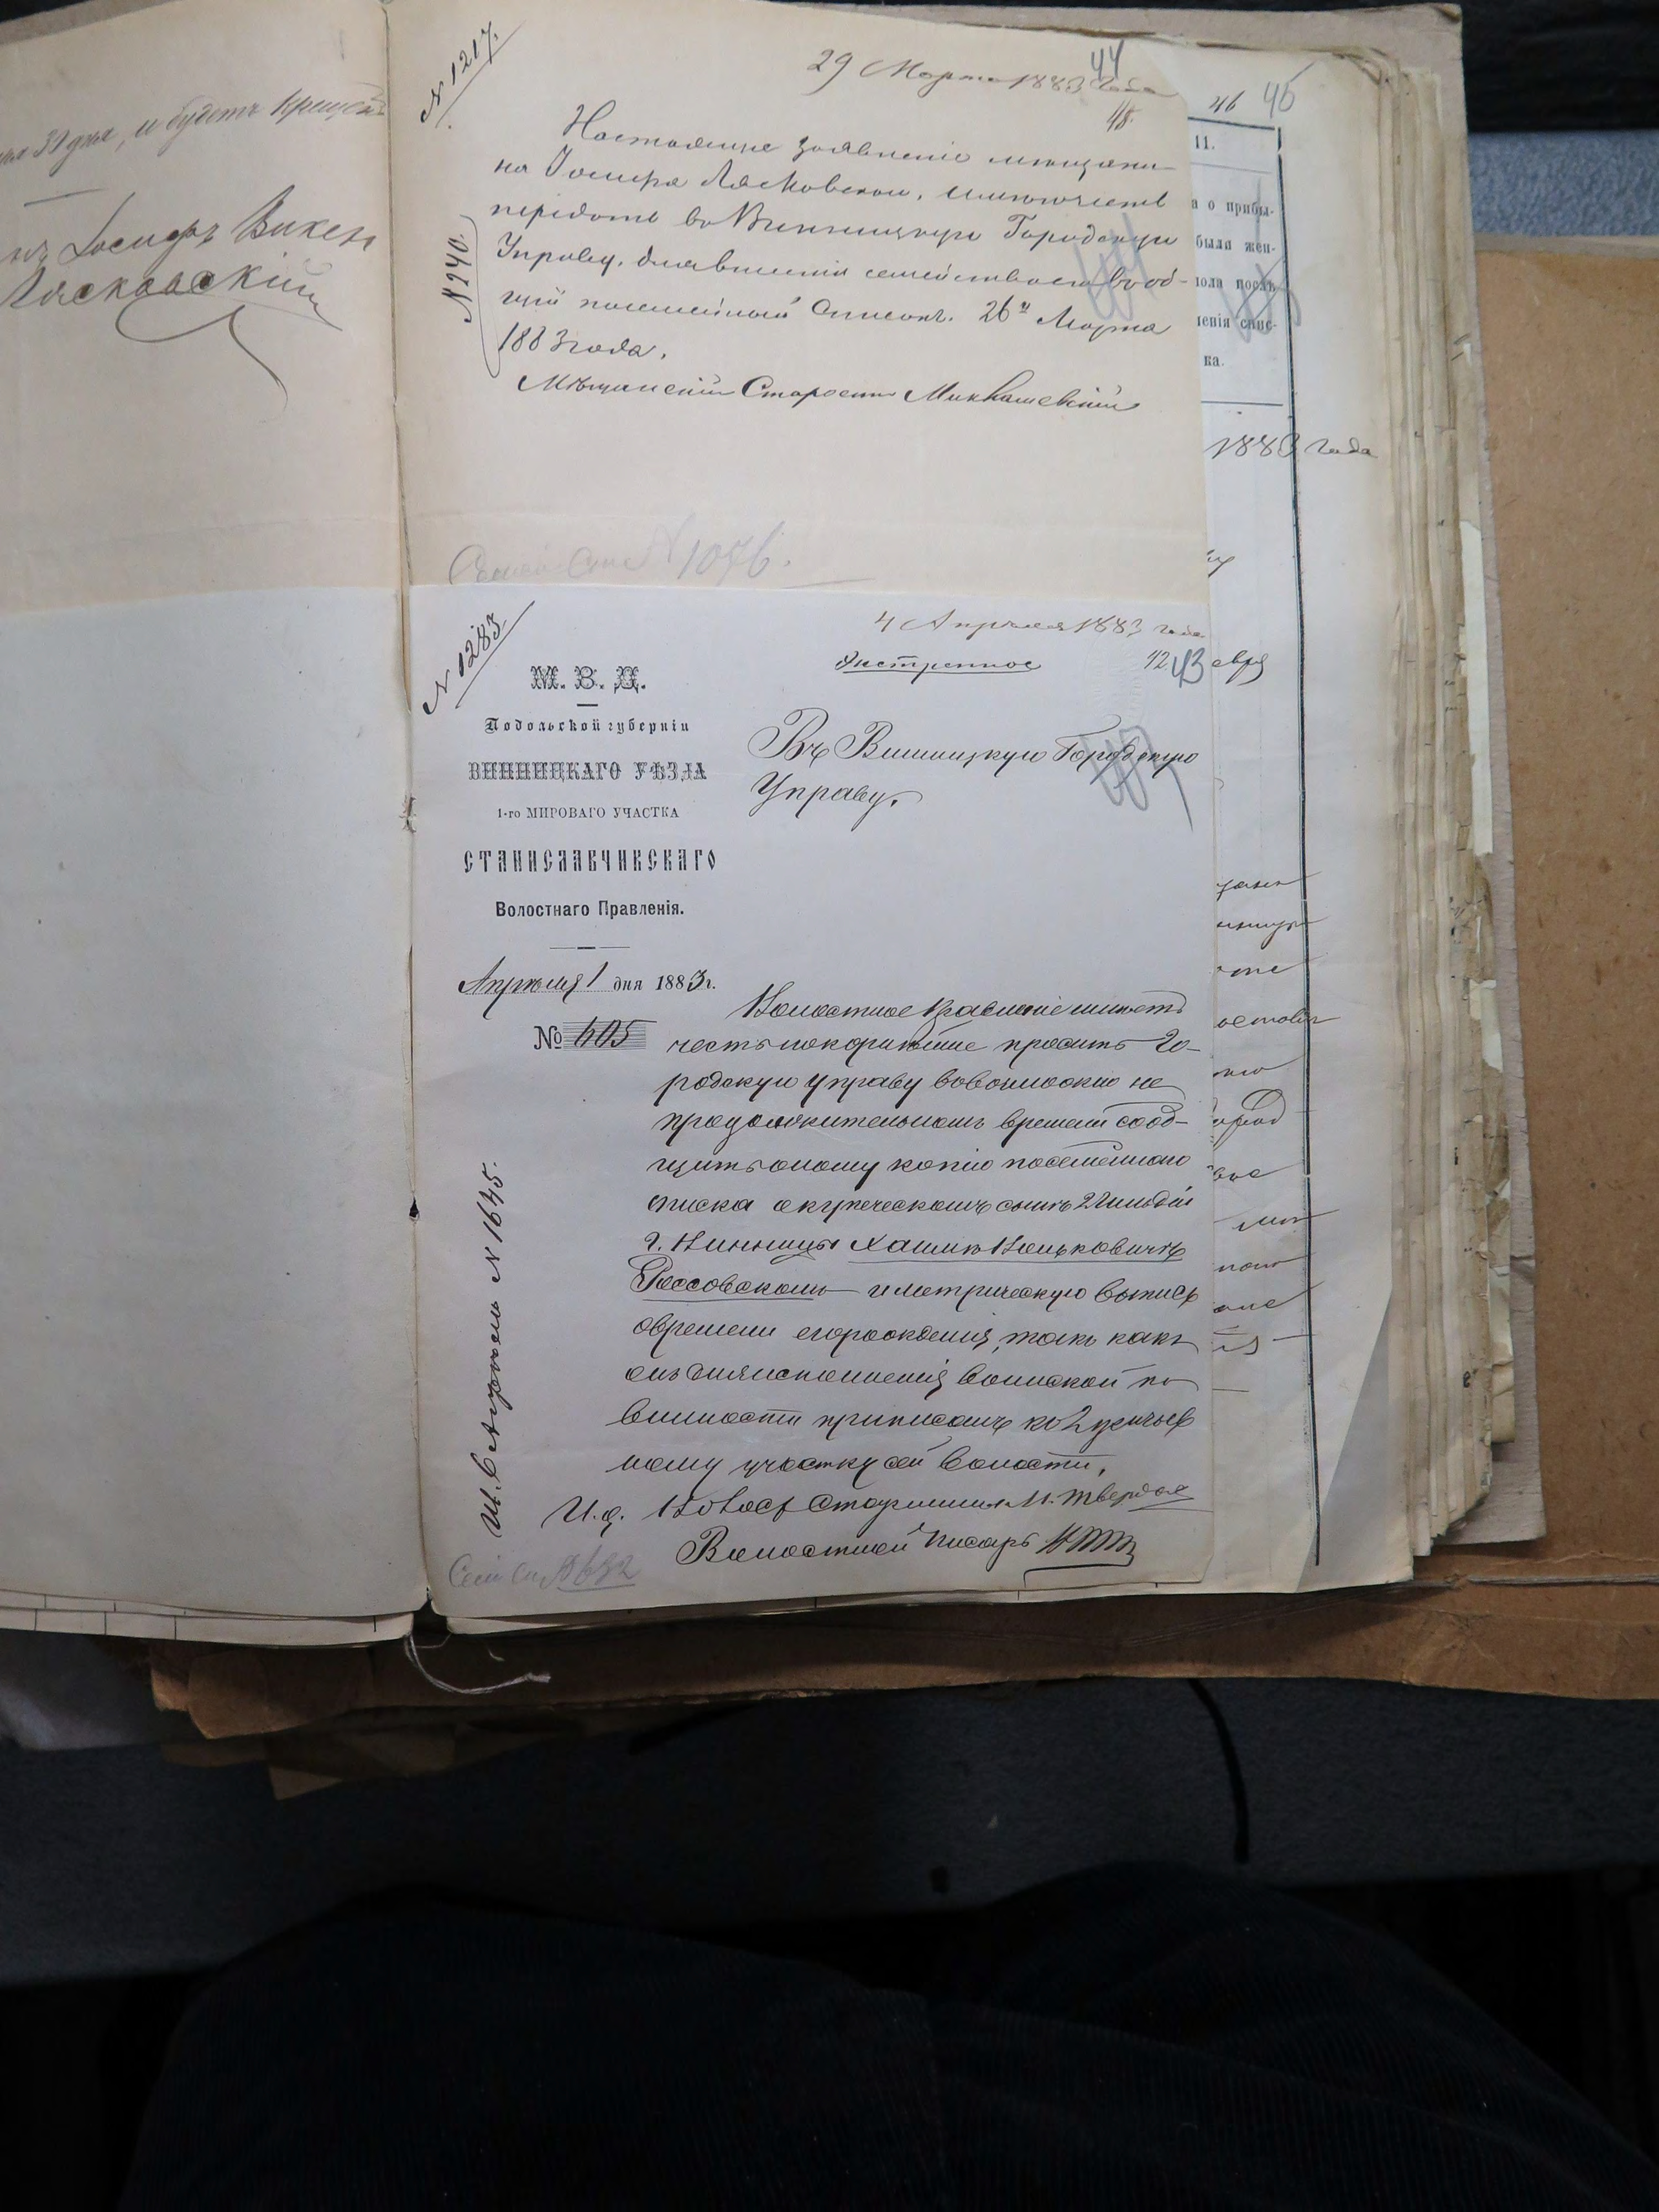 дня, и будетъ Крещенъ
Іосифъ Викен
Лясковскій
N 1217.
29 Марта 1883 года
44
48.
Настоящее заявленіе мѣщани-
на Іосифа Лясковскаго, имѣю честь
передать въ Винницкую Городскую
Управу, для внесенія семейства его въ об-
щій посемейный списокъ. 26го Марта
1883 года.
N 240.
Мѣщанскій Староста Микlашевскій
N 1076.
46 45
11.
а о прибы-
была жен-
пола послѣ
ленія спис-
ка.
1883 года
N 1283
4 Апрѣля 1883 года
Экстренное
42 43
евря
М. В. Д.
Подольской губерніи
ВИННИЦКАГО УѢЗДА
1-го МИРОВАГО УЧАСТКА
СТАНИСЛАВЧИКСКАГО
Волостнаго Правленія.
Апрѣля 1 дня 1883 г.
№ 405
Въ Винницкую Городскую
Управу.
Волостное Правленіе имѣетъ
честь покорнѣйше просить Го-
родскую Управу въ
продолжительномъ времени сооб-
щить оному копію посемейнаго
списка о купеческомъ сынѣ 2 гильдіи
г. Винницы Хаимѣ Вольковичѣ
Россовскомъ и метрическую выпись
о времени его рожденія, такъ какъ
онъ для исполненія воинской по
винности приписанъ ко 2 призыв
ному участку сей волости.
И. д. Волост Старшины М. Твердох
Волостной Писарь
Исп. 6 Апрѣля N 1645.
Сем Сп N 632